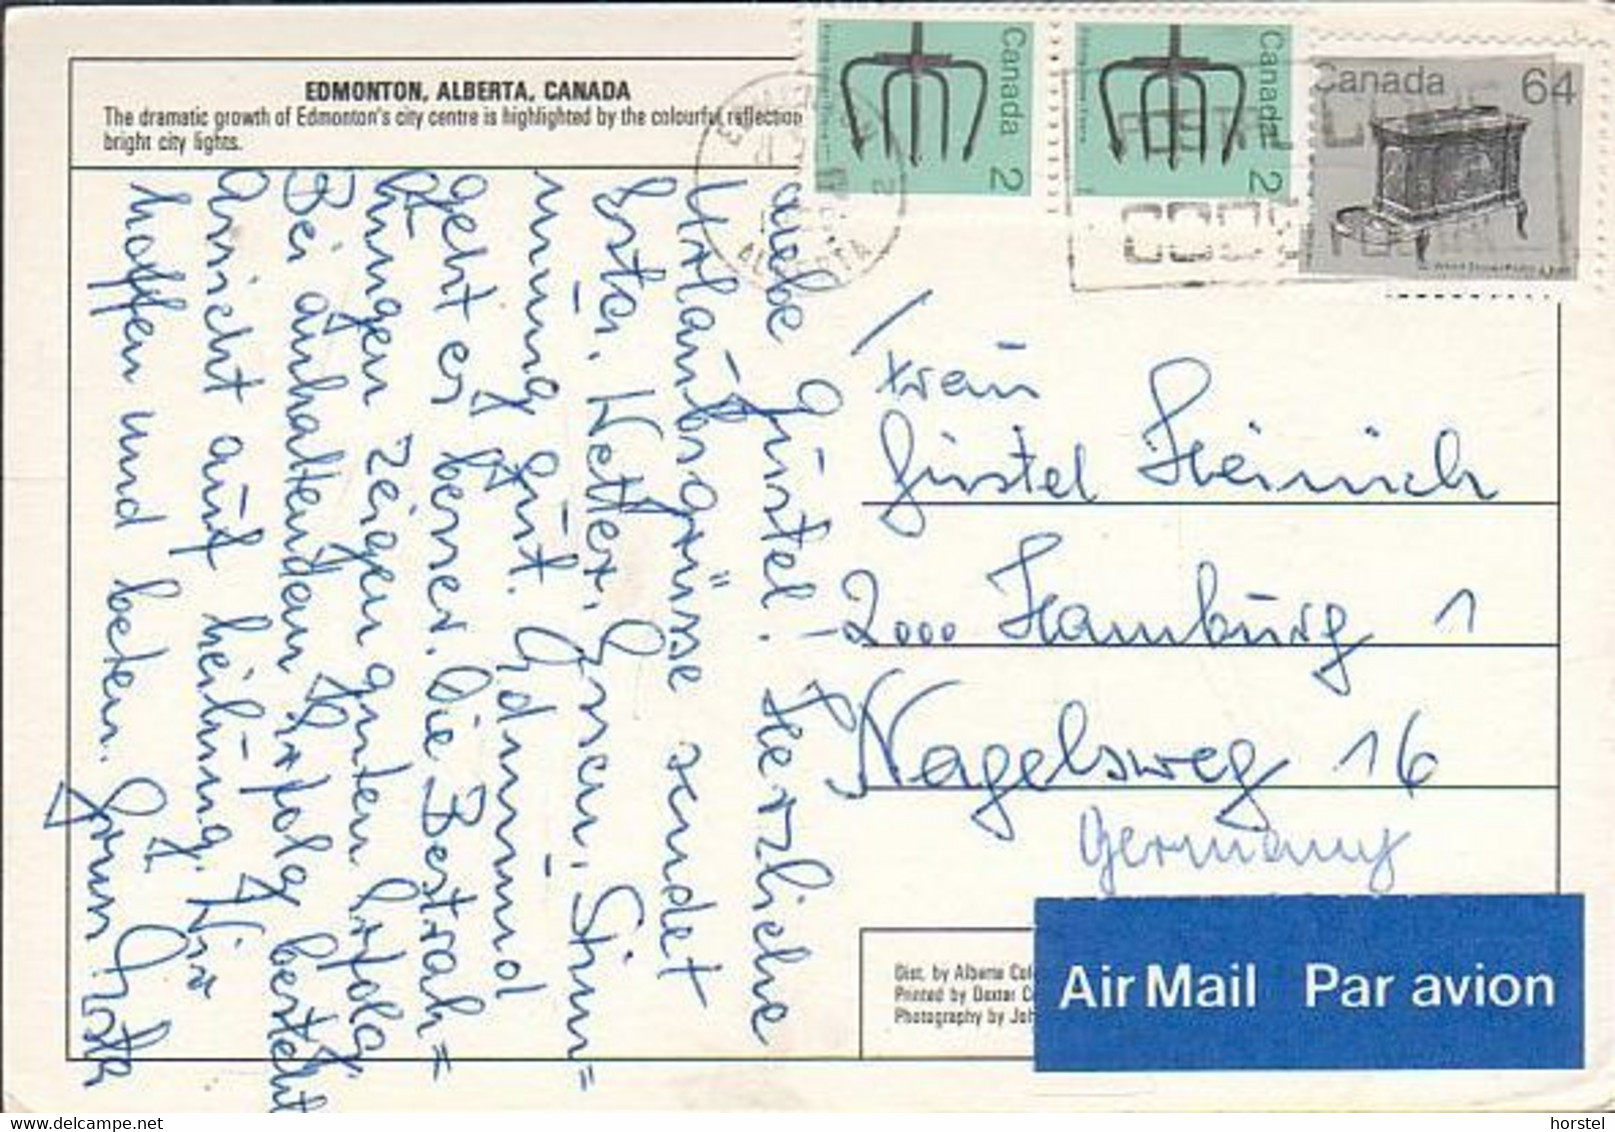 EDMONTON, ALBERTA, CANADA
The dramatic growth of Edmonton's city centre is highlighted by the colourful reflection
bright city lights.
Canada 2
Canada 2
Canada 64
ALBERTA
Liebe Gustel! Herzliche
Urlaubsgrüsse sendet
Esta. Wetter, Essen, Stim=
mung gut. Edmund
geht es besser. Die Bestrah=
lungen zeigen guten Erfolg
Bei anhaltendem Erfolg besteht
Aussicht auf Heilung. Wir
hoffen und beten. Gruss Esta
Frau
Gustel Heinrich
2000 Hamburg 1
Nagelsweg 16
Germany
Dist. by Alberta Col
Printed by Dexter C
Photography by Joh
Air Mail Par avion
horstel
www.delcampe.net